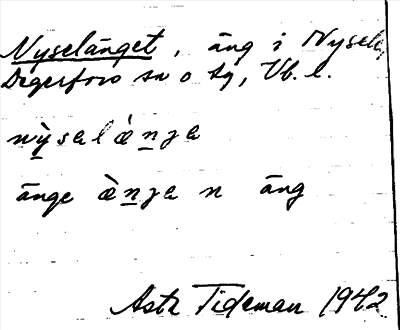 Nyselänget, äng i Nysele,
Degerfors sn o tg, Vb. l.
nỳselæ̀nja
änge æ̀nja n äng
Astr Tideman 1942